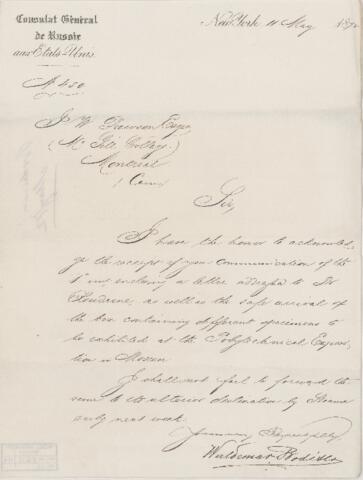 Consulat Général
de Russie
aux États-Unis.
New York 11 May 187
No 430
J. W. Dawson Esqre
(Mc Gill College)
Montreal
Sir,
I have the honor to acknowled-
ge the receipt of your communication of the
inst. enclosing a letter addressed to Dr
as well as the safe arrival of
the box containing different specimens to
be exhibited at the Polytechnical Exposi-
tion in Moscow.
I shall not fail to forward the
same to its ulterior destination by
early next week.
Respectfully
Waldemar Bodisco